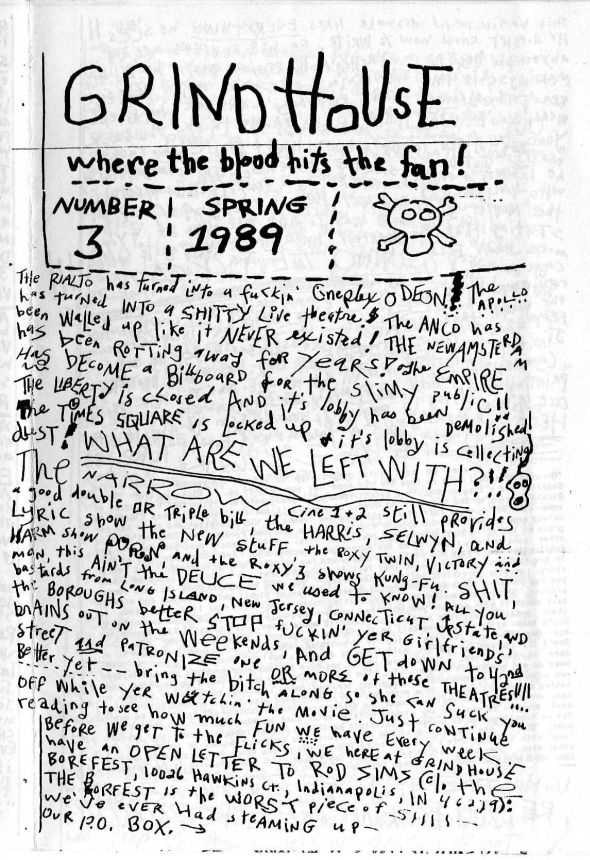 GRINDHOUSE
where the blood hits the fan!
NUMBER 3
SPRING 1989
THE RIALTO has turned into a fuckin' Cineplex ODEON! The APOLLO
has turned INTO a SHITTY Live theatre! The ANCO has
been walled up like it NEVER existed! THE NEW AMSTERDAM
has been ROTTING away for years! The EMPIRE
Has BECOME a Billboard for the slimy public!!
THE LIBERTY is closed AND it's lobby has been Demolished!
The TIMES SQUARE is Locked up & it's lobby is collecting
dust! WHAT ARE WE LEFT WITH?!!
The NARROW Cine 1+2 still provides
a good double OR TRIPLE bill, the HARRIS, SELWYN, and
Lyric show the NEW stuff the Roxy TWIN, VICTORY and
HARM show PORN, and the Roxy 3 shows KUNG-FU. SHIT,
man, this AIN'T the DEUCE we used to KNOW! All you
bastards from LONG ISLAND, New Jersey, CONNECTICUT, UPSTATE, AND
the BOROUGHS better STOP fuckin' yer Girlfriends'
bRAINS OUT ON the Weekends, And GET dowN to 42nd
street and PATRONIZE one OR MORE of these THEATRES!!!!
Better yet--- bring the bitch ALONG so she CAN Suck you
OFF while yer watchin' the Movie. Just CONTINUE
reading to see how much FUN WE have Every week.
Before we get to the FLICKS, WE HERE at GRINDHOUSE
have an OPEN LETTER TO ROD SIMS (c/o the
BOREFEST, 10026 HAWKINS Ct., Indianapolis, IN 46229):
THE BOREFEST is the WORST piece of -
we've ever had steaming up
OUR P.O. BOX. →